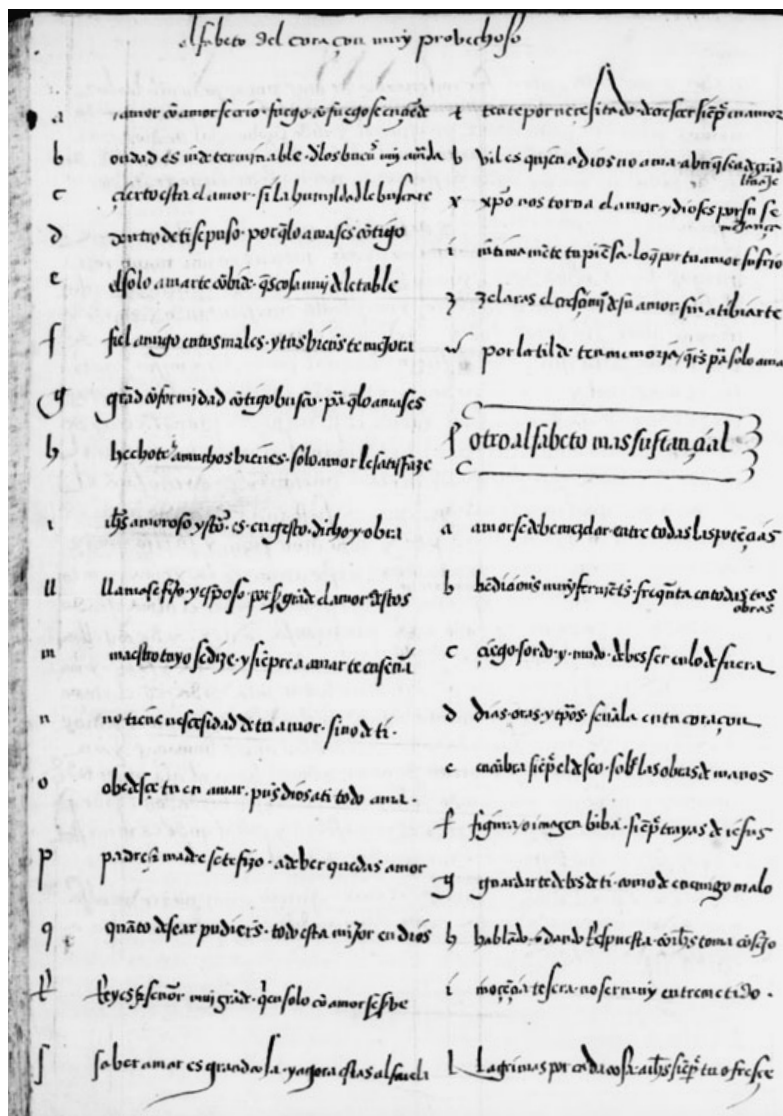 alfabeto del coraçon muy provechoso
a amor cõ amor se crio · fuego cõ fuego se enciẽde
b ondad es indeterminable · dlos
c çierto esta el amor · si la humildad le buscare
d dentro de ti se puso · porq̃ lo amases cõtigo
e el solo amarte cõbide · q̃ es cosa muy deletable
f fiel amigo en tus males · y tus bienes te mejora
g grãd cõformidad cõtigo busco · pa q̃ lo amases
h hechote a muchos bienes · solo amor le satisfaze
i ihs amoroso y · es en gesto · dicho y obra
ll llamase fijo · y esposo · por grãde el amor destos
m maestro tuyo se dize · y siẽpre a amarte enseña
n no tiene nescesidad de tu amor · sino de ti ·
o obedesçe tu en amar · pues dios a ti todo ama ·
p padre madre fijo · a deber quedas amor
q quãto desear pudieres · todo esta mejor en dios
R Rey es señor mui grãde · q̃ en solo cõ amor se sirbe
s saber amar es grand · y agora estas al
t tente por necesitado · de creçer siẽpre en amor
v vil es quien a dios no ama · abnq̃ sea de grãd
linaje
x xpõ nos torna el amor · y dioses por su se
mejança
i intimamẽte tu piẽsa · lo q̃ por tu amor sufrio
z zelaras el de su amor · sin atibiarte
por la tilde ten memoria q̃ pa solo ama
otro alfabeto mas sustançial
a amor se debe mezclar · entre todas las potẽçias
b bediçiones muy ferviẽtes · freqũta en todas tus
obras
c çiego · sordo · y mudo · debes ser en lo de fuera
d dias · oras · y tpõs · señala en tu coraçon
e encũbra siẽpre el deseo · sobre las obras de manos
f figura o imagen biba · siẽpre trayas de iesus
g guardarte debes de ti · como de enemigo malo
h hablãdo · o dando respuesta · cõ ihs toma cõsejo
i inoçẽçia te sera · no ser muy entremetido ·
l Lagrimas por cada cosa · a ihs siẽpre tu ofresce